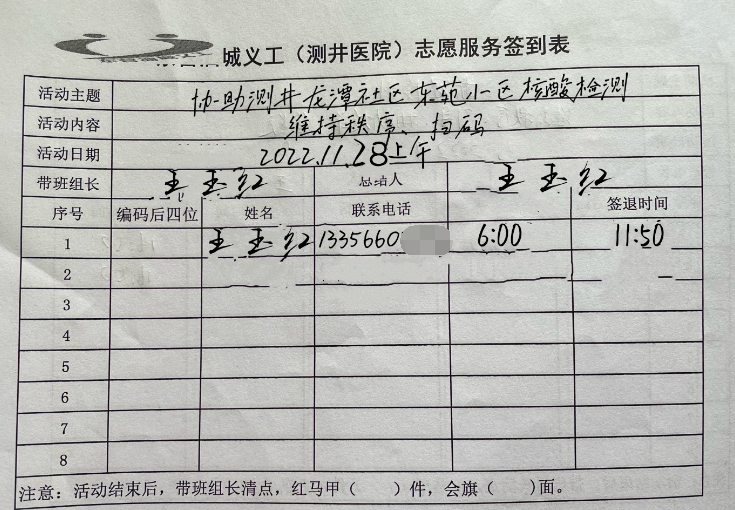 城义工（测井医院）志愿服务签到表
活动主题 协助测井龙潭社区东苑小区核酸检测
活动内容 维持秩序、扫码
活动日期 2022.11.28上午
带班组长 王玉红 总结人 王玉红
序号 编码后四位 姓名 联系电话 签退时间
1 王玉红 1335660 6:00 11:50
2
3
4
5
6
7
8
注意：活动结束后，带班组长清点，红马甲（ ）件，会旗（ ）面。